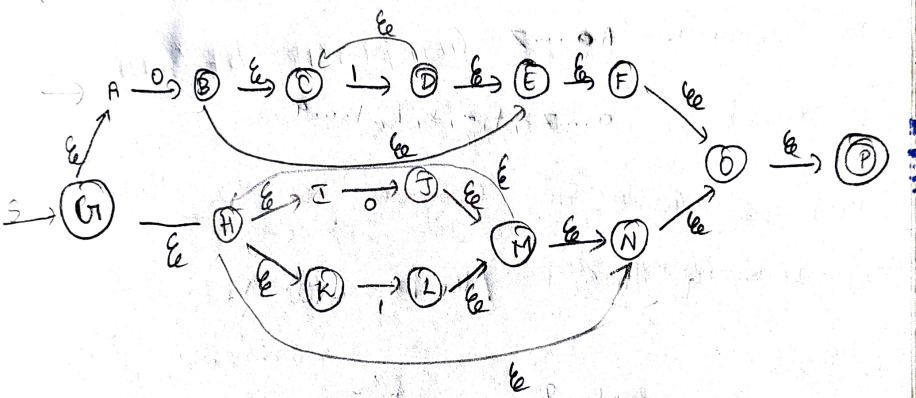 ε
A 0 B ε C 1 D ε E ε F
ε
ε
ε
ε
O ε P
G
ε I 0 J ε
ε
H
M ε N
ε
ε
ε K 1 L ε
ε